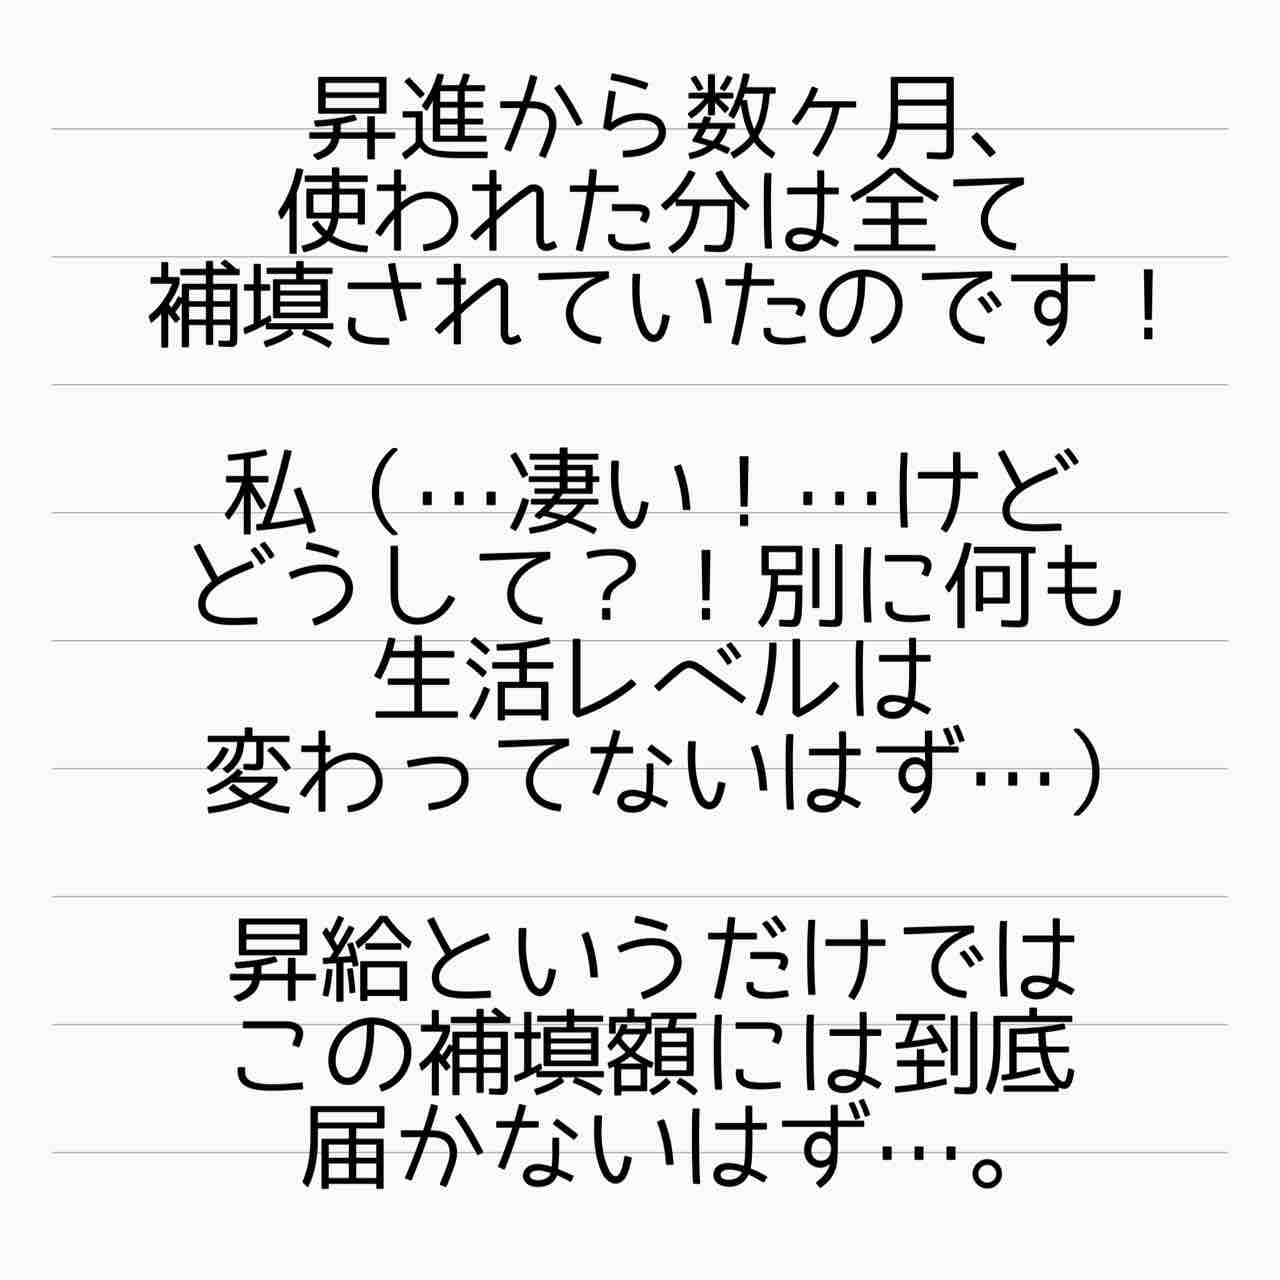 昇進から数ヶ月、
使われた分は全て
補填されていたのです！
私（…凄い！…けど
どうして？！別に何も
生活レベルは
変わってないはず…）
昇給というだけでは
この補填額には到底
届かないはず…。